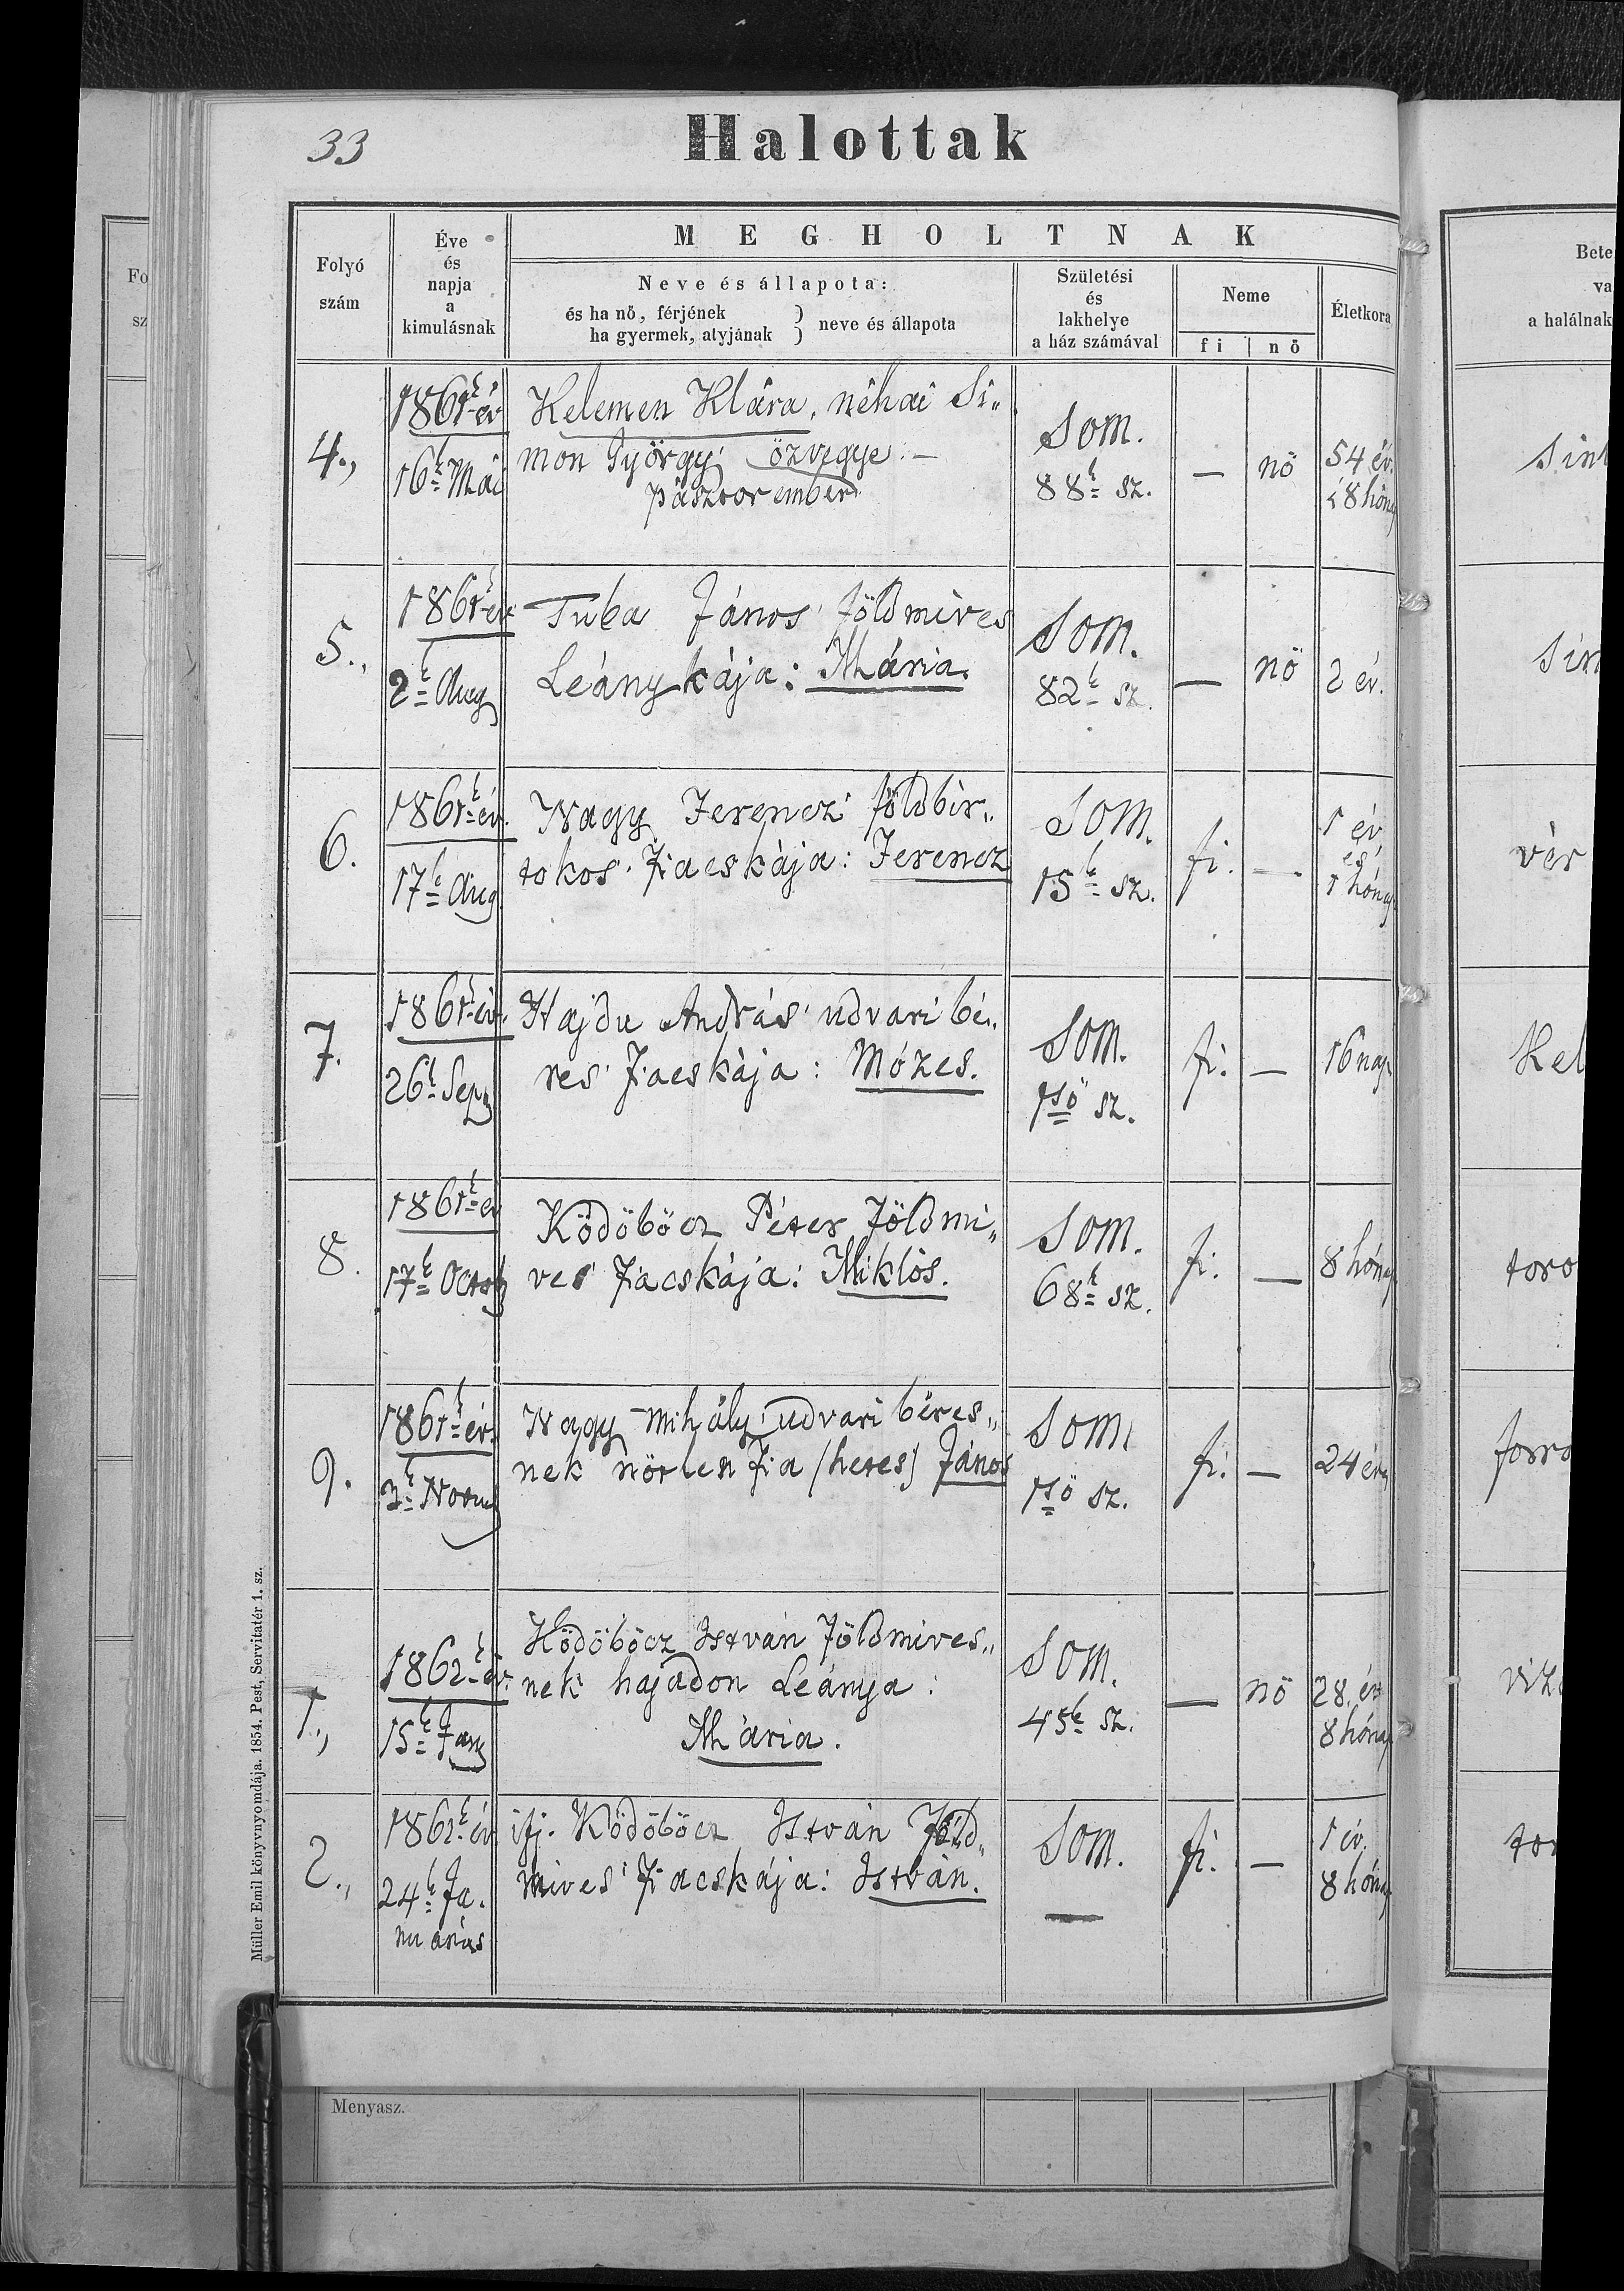 33
Halottak
Folyó
szám
Éve
és
napja
a
kimulásnak
MEGHOLTNAK
Neve és állapota:
és ha nő, férjének
ha gyermek, atyjának } neve és állapota
Születési
és
lakhelye
a ház számával
Neme
fi nő
Életkora
4.,
1861k év
16k Mái
Kelemen Klára, néhai Si„
mon György özvegye –
pásztor ember
Som.
88k sz.
—
nő
54 év.
8 hóna
5.,
1861k év
2k Aug
Tuba János földmives
Leánykája: Mária.
Som.
82k sz.
—
nő
2 év.
6.
1861k év.
17k Aug
Nagy Ferencz földbir„
tokos Fiacskája: Ferencz
Som.
15k sz.
fi.
—.
1 év,
és
1 hónap
7.
1861k év.
26k Sep
Hajdu András udvari bé„
res Fiacskája: Mózes.
Som.
1ső sz.
fi.
—
16 nap
8.
1861k év
17k Octob
Ködöböcz Péter Földmi„
ves Fiacskája: Miklós.
Som.
68k sz.
fi.
—
8 hónap
9.
1861k év.
3k Novem
Nagy Mihály udvari béres„
nek nőtlen Fia (heres) János
Som.
1ső sz.
fi.
—
24 éves
1.,
1862k év.
15k Jan
Ködöböcz István Földmives„
nek hajadon Leánya:
Mária.
Som.
45k sz.
—
nő
28. év
8 hónap
2.,
1862k év
24k Ja.
nuárius
ifj. Ködöböcz István Föld„
mives Fiacskája: István.
Som.
—
fi.
—
1 év.
8 hónap
Müller Emil könyvnyomdája. 1854. Pest, Servitatér 1. sz.
Menyasz.
Fo
sz
Bete
va
a halálnak
vér
Kel
toro
forro
viz